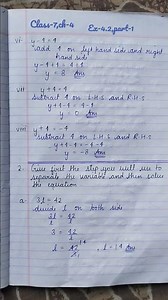 Class-7, ch-4 Ex-4.2, part-1
vi y-4=4
add 4 on left hand side and right
hand side
y-4+4=4+4
y=8 Ans
vii y+4=4
subtract 4 on L.H.S and R.H.S
y+4-4=4-4
y=0 Ans
viii y+4=-4
subtract 4 on L.H.S. and R.H.S
y+4-4=-4-4
y=-8 Ans
2- Give first the step you will use to
separate the variable and then solve
the equation
a 3l=42
divide 3 on both side
l=14 Ans